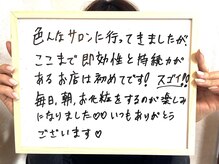 色んなサロンに行ってきましたが、
ここまで即効性と持続力が
あるお店は初めてです！スゴイ!!
毎日、朝、お化粧をするのが楽しみ
になりました♡♡いつもありがとう
ございます♡